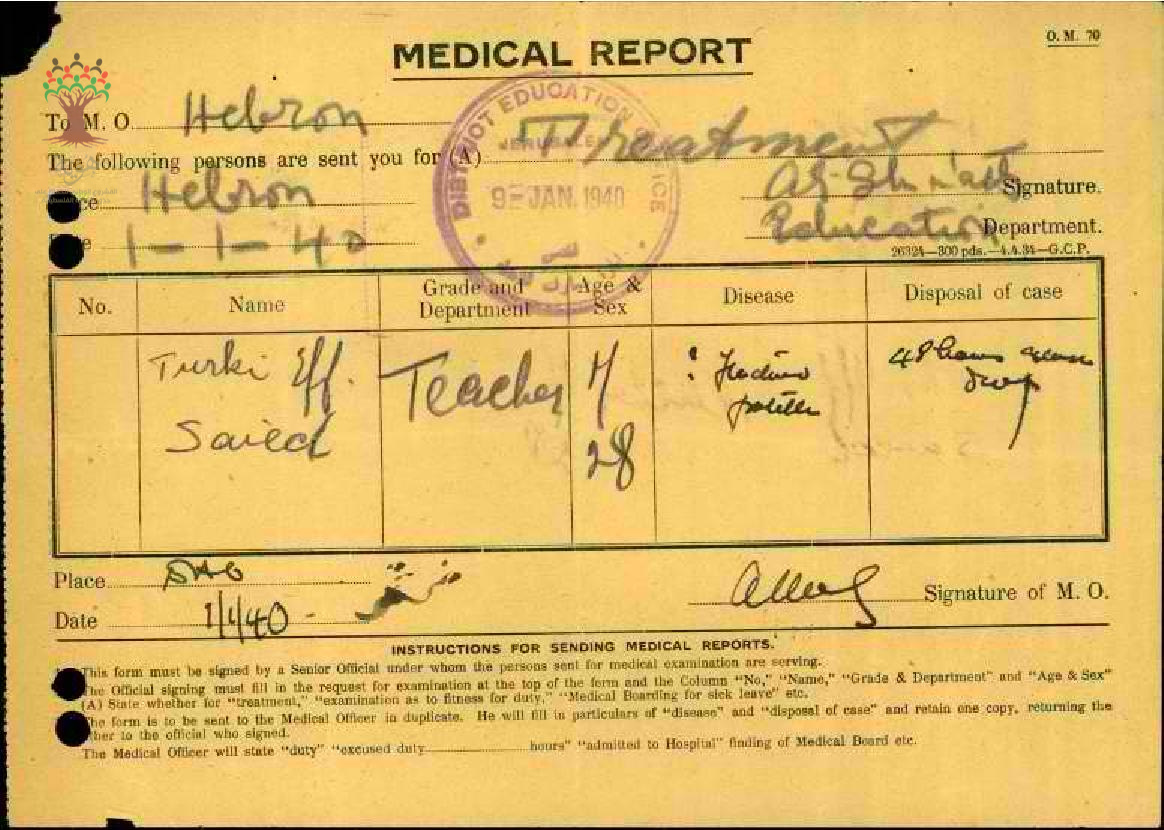 O. M. 70
MEDICAL REPORT
To M. O. Hebron
The following persons are sent you for (A) Treatment
DISTRICT EDUCATION OFFICE
JERUSALEM
9 - JAN. 1940
Hebron
Signature.
1-1-40
Education Department.
26324—300 pds.—4.4.34—G.C.P.
No. Name Grade and Department Age & Sex Disease Disposal of case
Turki Eff. Teacher M
Saied 28
48 hours
Place DHO
Date 1/1/40 Signature of M. O.
INSTRUCTIONS FOR SENDING MEDICAL REPORTS.
This form must be signed by a Senior Official under whom the persons sent for medical examination are serving.
The Official signing must fill in the request for examination at the top of the form and the Column "No," "Name," "Grade & Department" and "Age & Sex"
(A) State whether for "treatment," "examination as to fitness for duty," "Medical Boarding for sick leave" etc.
The form is to be sent to the Medical Officer in duplicate. He will fill in particulars of "disease" and "disposal of case" and retain one copy, returning the
other to the official who signed.
The Medical Officer will state "duty" "excused duty hours" "admitted to Hospital" finding of Medical Board etc.